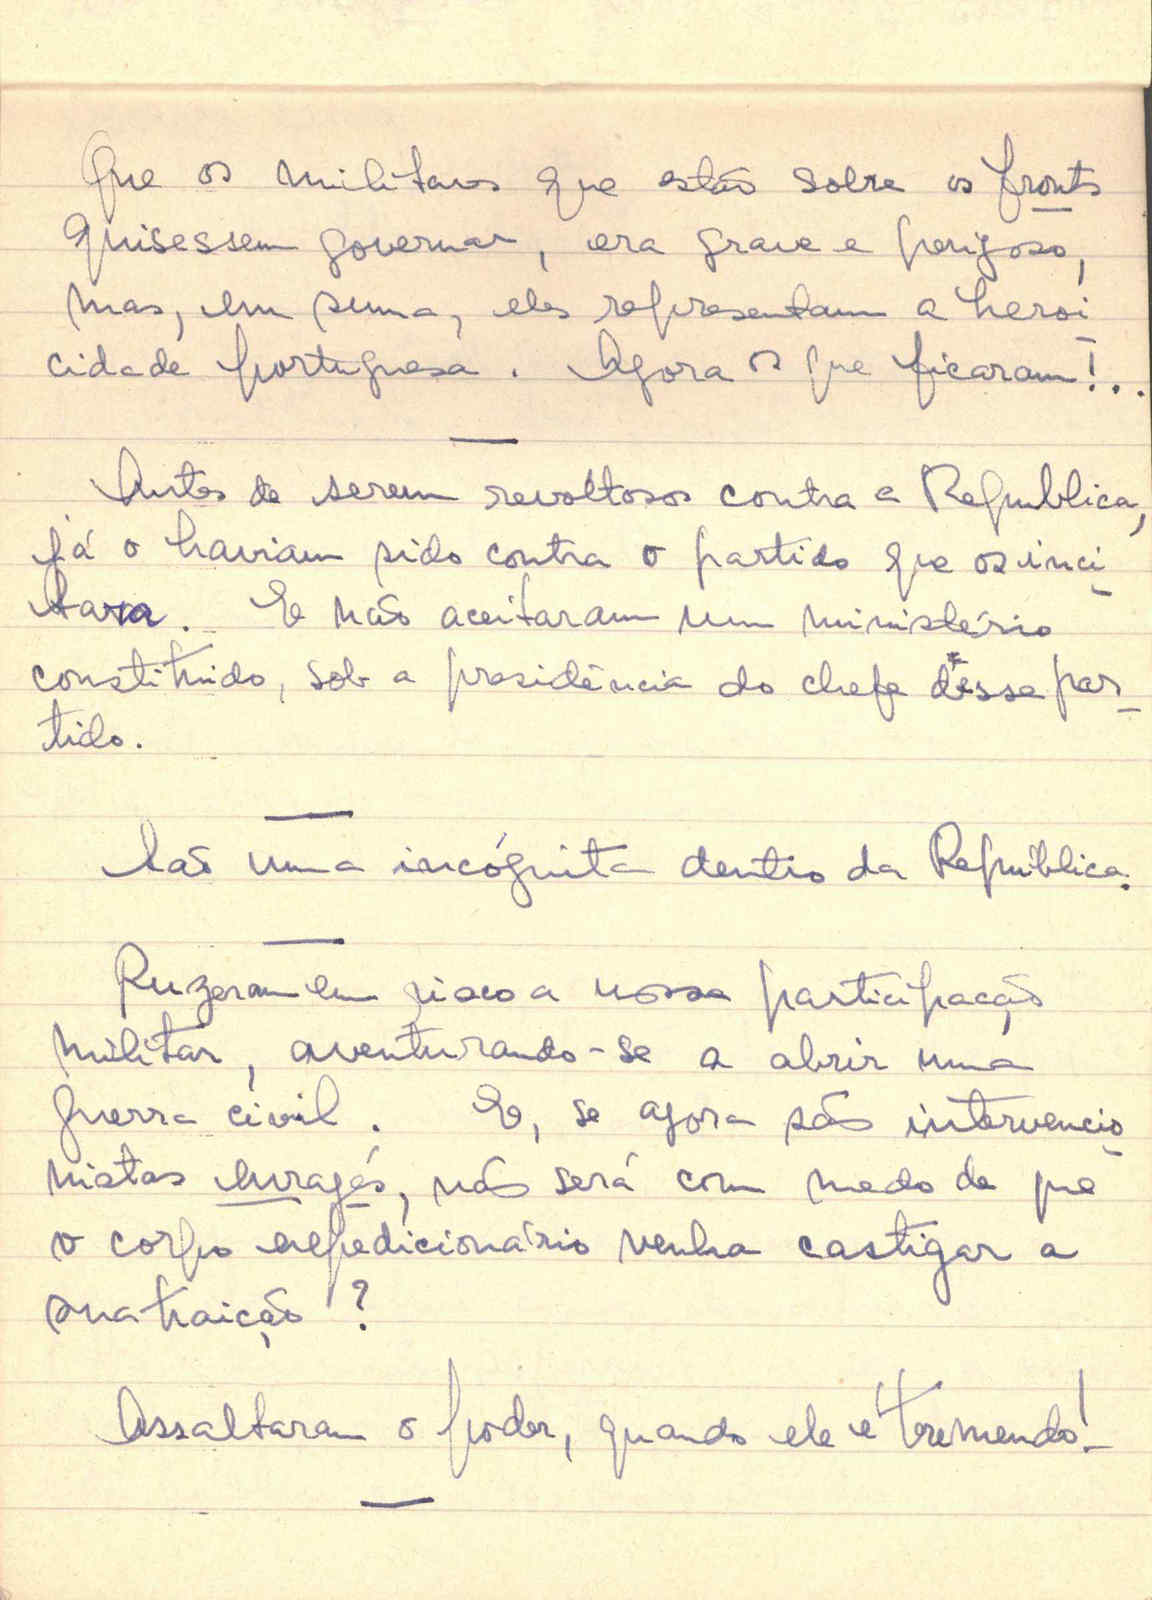 Que os militares que estão sobre os fronts
quisessem governar, era grave e perigoso,
mas, em suma, eles representam a heroi
cidade portuguesa. Agora os que ficaram!..
Antes de serem revoltosos contra a Republica,
já o haviam sido contra o partido que os inci
tara. E não aceitaram um ministério
constituido, sob a presidência do chefe dêsse par_
tido.
São uma incógnita dentro da República.
Puzeram em risco a nossa participação
militar, aventurando-se a abrir uma
guerra civil. E, se agora são intervencio
nistas, não será com medo de que
o corpo expedicionário venha castigar a
sua traição?
Assaltaram o poder, quando ele é tremendo!